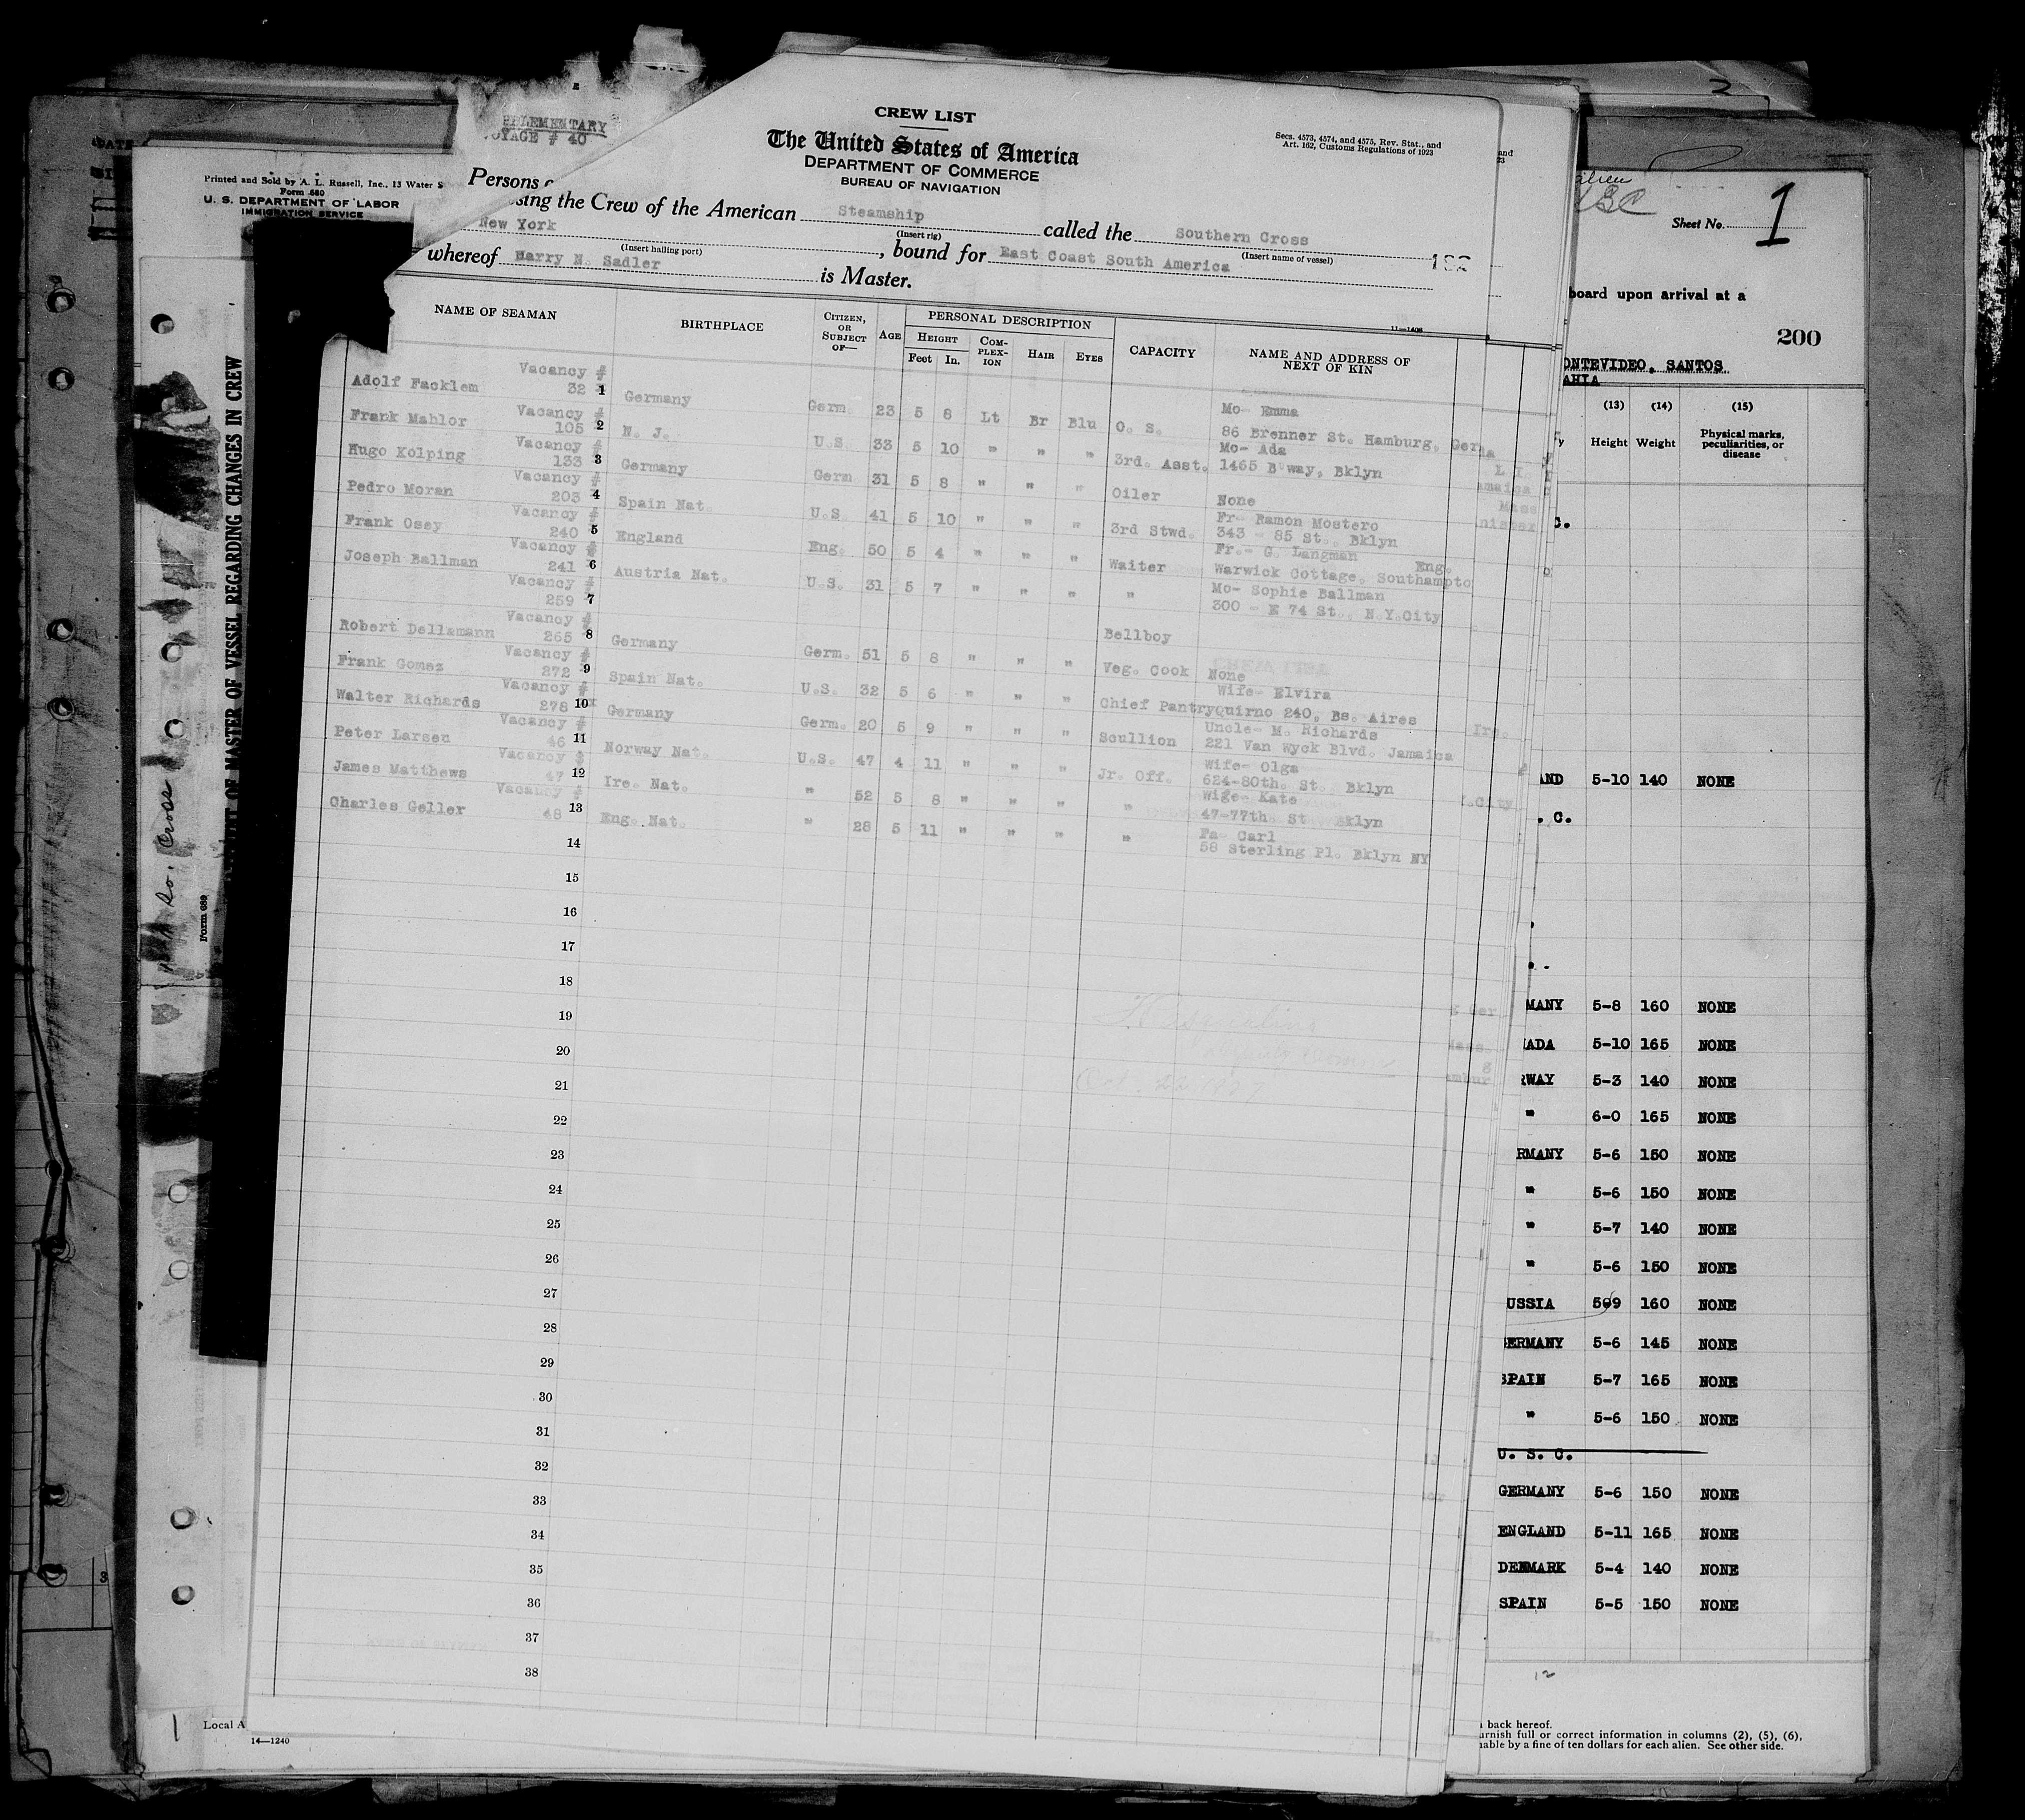 PPLEMENTARY
OYAGE # 40
CREW LIST
The United States of America
DEPARTMENT OF COMMERCE
BUREAU OF NAVIGATION
Secs. 4573, 4574, and 4575, Rev. Stat., and
Art. 162, Customs Regulations of 1923
Persons
sing the Crew of the American Steamship called the Southern Cross
(Insert rig) (Insert name of vessel)
New York, bound for East Coast South America 192
(Insert hailing port)
whereof Harry N. Sadler is Master.
11—1406
NAME OF SEAMAN BIRTHPLACE CITIZEN, OR SUBJECT OF— AGE PERSONAL DESCRIPTION CAPACITY NAME AND ADDRESS OF NEXT OF KIN
HEIGHT COMPLEXION HAIR EYES
Feet In.
Vacancy # Mo- Emma
Adolf Facklem 32 1 Germany Germ. 23 5 8 Lt Br Blu O. S. 86 Brenner St. Hamburg, Germ
Vacancy # Mo- Ada
Frank Mahlor 105 2 N. J. U.S. 33 5 10 " " " 3rd. Asst. 1465 B'way, Bklyn
Vacancy #
Hugo Kolping 133 3 Germany Germ 31 5 8 " " " Oiler None
Vacancy # Fr- Ramon Mostero
Pedro Moran 203 4 Spain Nat. U.S. 41 5 10 " " " 3rd Stwd. 343 - 85 St., Bklyn
Vacancy # Fr.- G. Langman Eng.
Frank Osey 240 5 England Eng. 50 5 4 " " " Waiter Warwick Cottage, Southampto
Vacancy # Mo- Sophie Ballman
Joseph Ballman 241 6 Austria Nat. U.S. 31 5 7 " " " " 300 - E 74 St., N.Y.City
Vacancy #
259 7 Bellboy
Vacancy #
Robert Dellamann 265 8 Germany Germ. 51 5 8 " " " Veg. Cook None
Vacancy # Wife- Elvira
Frank Gomez 272 9 Spain Nat. U.S. 32 5 6 " " " Chief Pantry Quirno 240, Bs. Aires
Vacancy # Uncle- M. Richards
Walter Richards 278 10 Germany Germ. 20 5 9 " " " Scullion 221 Van Wyck Blvd. Jamaica
Vacancy # Wife- Olga
Peter Larsen 46 11 Norway Nat. U.S. 47 4 11 " " " Jr. Off. 624-80th. St. Bklyn
Vacancy # Wige- Kate
James Matthews 47 12 Ire. Nat. " 52 5 8 " " " " 47-77th St Bklyn
Vacancy # Fa- Carl
Charles Geller 48 13 Eng. Nat. " 28 5 11 " " " " 58 Sterling Pl. Bklyn NY
14
15
16
17
18
19
20
Oct. 22
21
22
23
24
25
26
27
28
29
30
31
32
33
34
35
36
37
38
14—1240
Printed and Sold by A. L. Russell, Inc., 13 Water S
Form 680
U. S. DEPARTMENT OF LABOR
IMMIGRATION SERVICE
OF MASTER OF VESSEL REGARDING CHANGES IN CREW
Form 689
So. Cross
Local A
1
3
2
alien
Sheet No. 1
board upon arrival at a
200
ONTEVIDEO, SANTOS
AHIA
(13) (14) (15)
Height Weight Physical marks, peculiarities, or disease
C.
AND 5-10 140 NONE
. C.
MANY 5-8 160 NONE
ADA 5-10 165 NONE
RWAY 5-3 140 NONE
" 6-0 165 NONE
RMANY 5-6 150 NONE
" 5-6 150 NONE
" 5-7 140 NONE
" 5-6 150 NONE
USSIA 5-9 160 NONE
GERMANY 5-6 145 NONE
SPAIN 5-7 165 NONE
" 5-6 150 NONE
U. S. C.
GERMANY 5-6 150 NONE
ENGLAND 5-11 165 NONE
DENMARK 5-4 140 NONE
SPAIN 5-5 150 NONE
12
back hereof.
urnish full or correct information in columns (2), (5), (6),
nable by a fine of ten dollars for each alien. See other side.